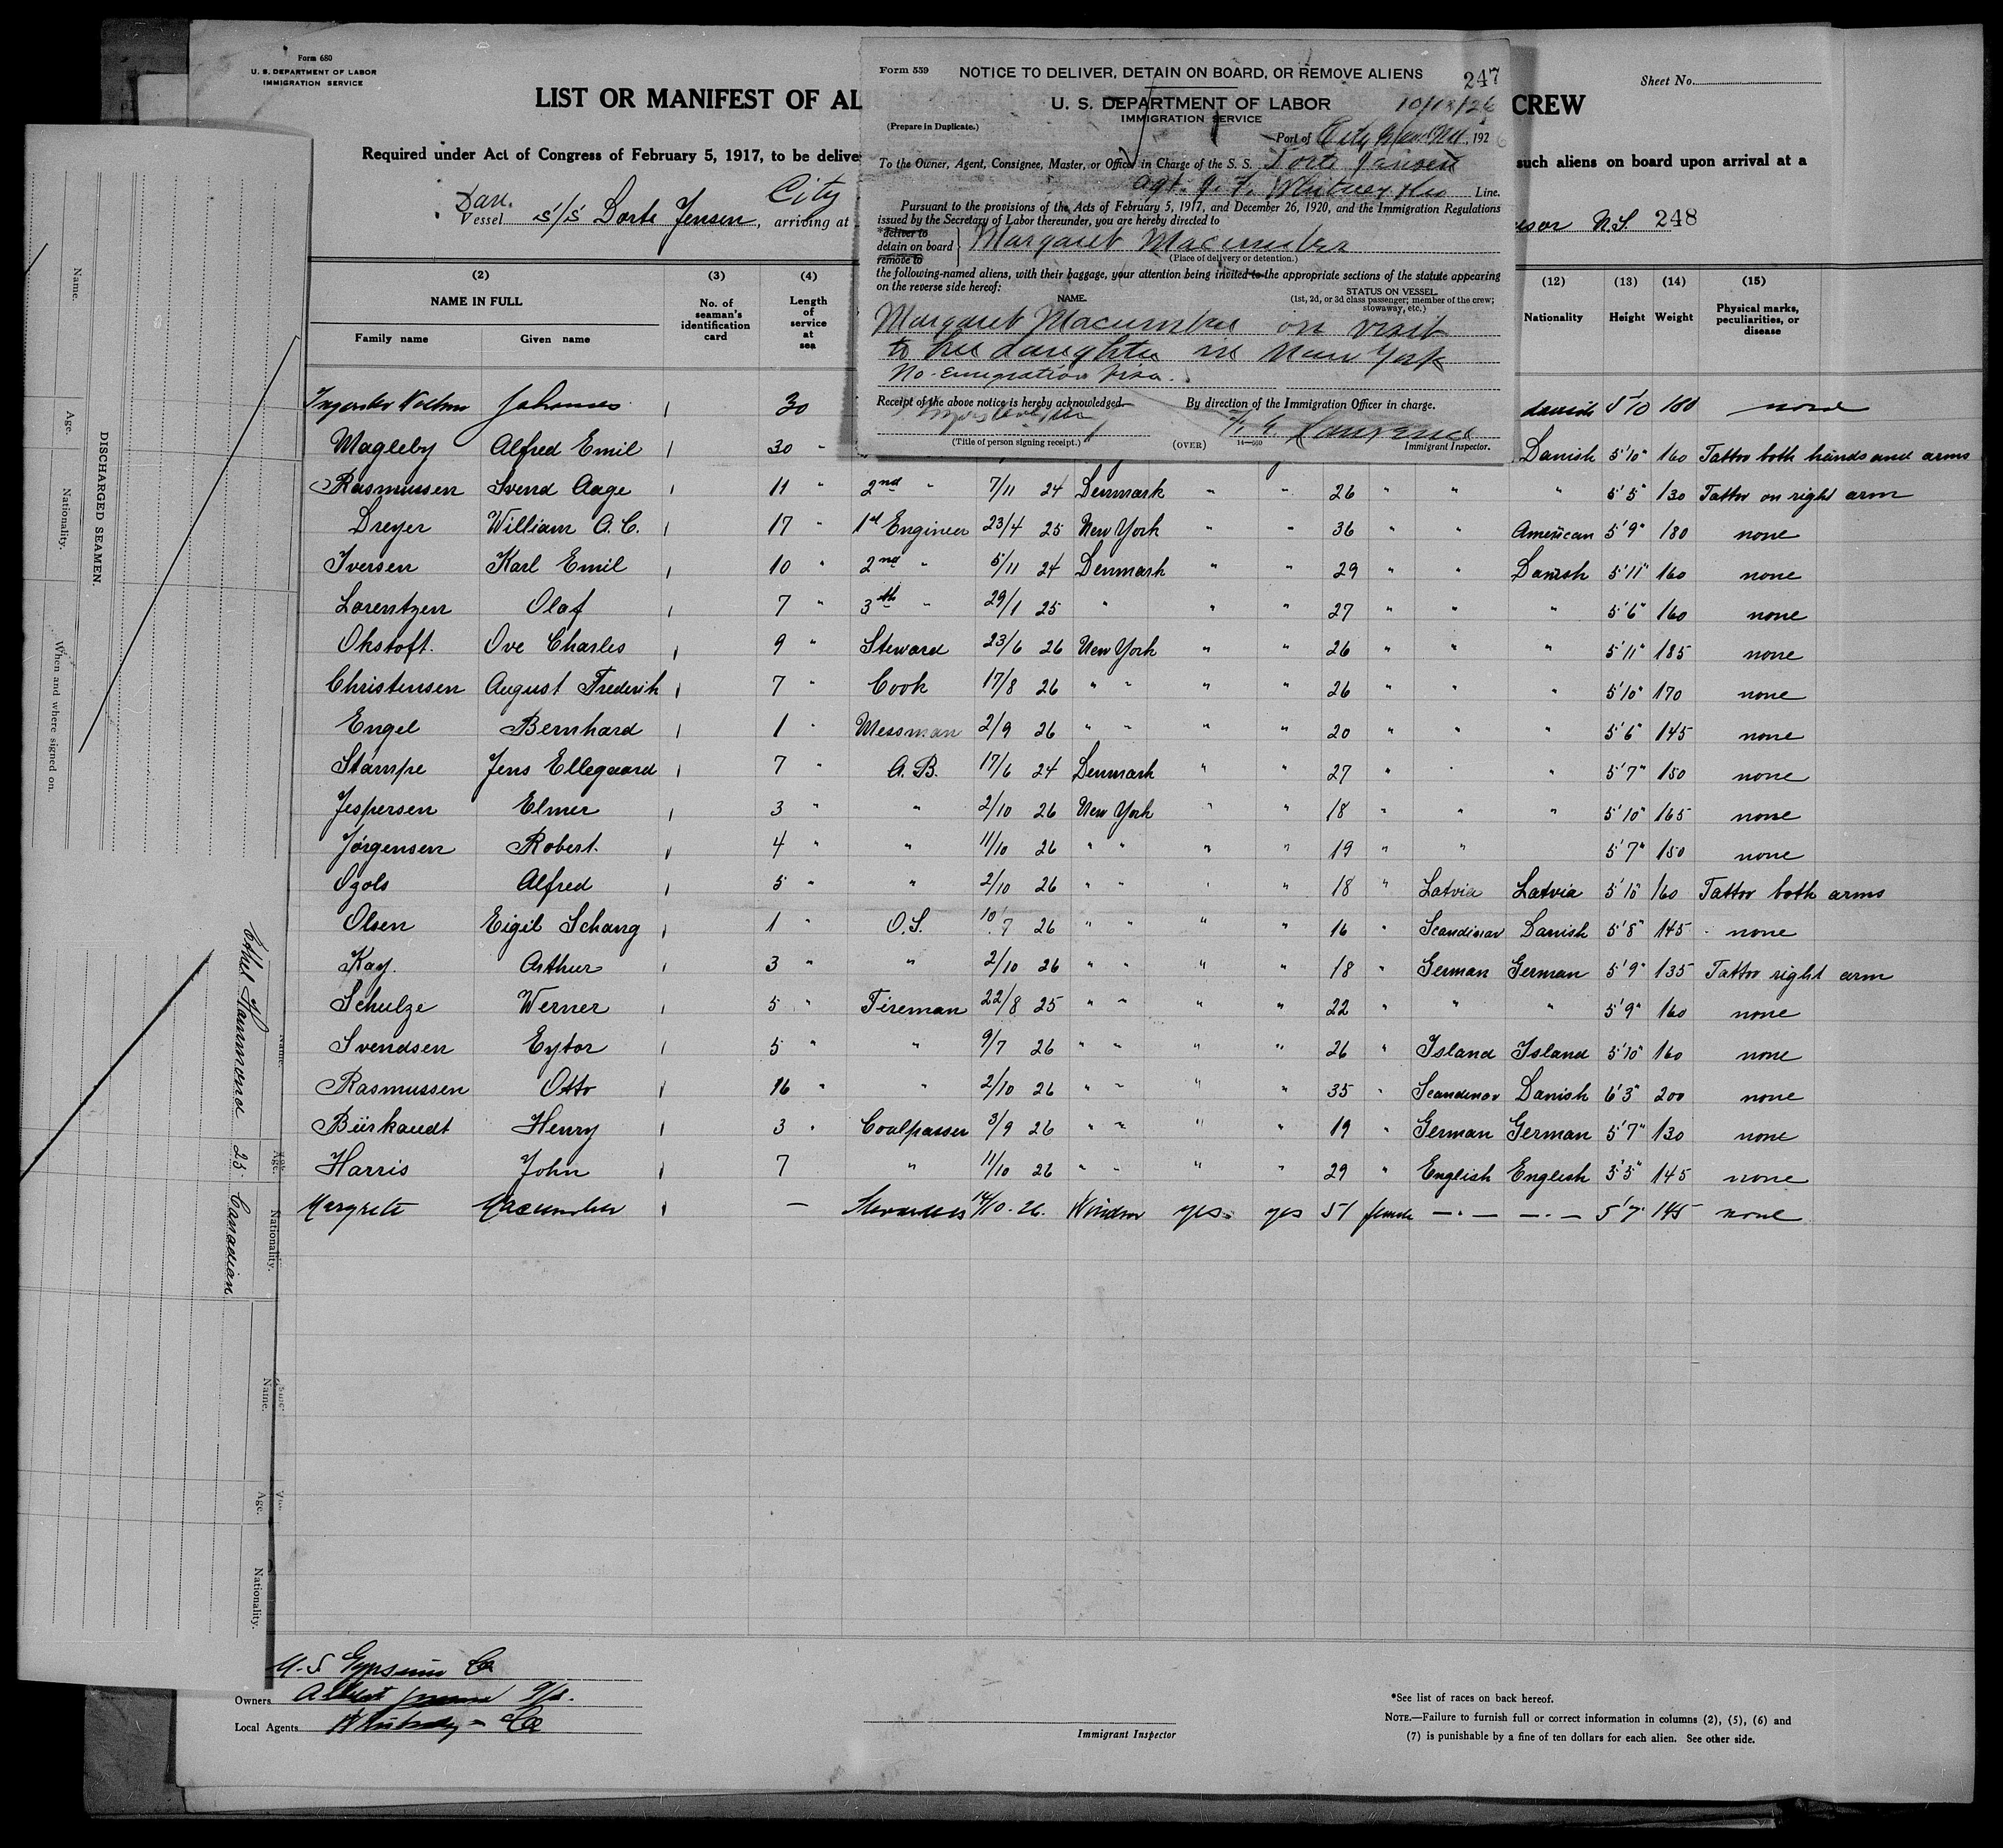 Form 680
U. S. DEPARTMENT OF LABOR
IMMIGRATION SERVICE
LIST OR MANIFEST OF AL
CREW
Sheet No.
Required under Act of Congress of February 5, 1917, to be delive
such aliens on board upon arrival at a
Dan. City
Vessel s/s Dorte Jensen, arriving at
N.S. 248
Form 559 NOTICE TO DELIVER, DETAIN ON BOARD, OR REMOVE ALIENS 247
U. S. DEPARTMENT OF LABOR 10/18/26
IMMIGRATION SERVICE
(Prepare in Duplicate.)
Port of City, 192
To the Owner, Agent, Consignee, Master, or Officer in Charge of the S. S. Dorte Jansen
Agt. J. F. Whitney & Co Line.
Pursuant to the provisions of the Acts of February 5, 1917, and December 26, 1920, and the Immigration Regulations
issued by the Secretary of Labor thereunder, you are hereby directed to
*deliver to
detain on board
remove to
Margaret Macumber
(Place of delivery or detention.)
the following-named aliens, with their baggage, your attention being invited to the appropriate sections of the statute appearing
on the reverse side hereof:
NAME.
STATUS ON VESSEL
(1st, 2d, or 3d class passenger; member of the crew;
stowaway, etc.)
Margaret Macumber on visit
to her daughter in New York
No emigration visa.
Receipt of the above notice is hereby acknowledged
By direction of the Immigration Officer in charge.
(Title of person signing receipt.)
(OVER)
14—960
Lawrence
Immigrant Inspector.
(2) (3) (4) (12) (13) (14) (15)
NAME IN FULL
No. of seaman's identification card
Length of service at sea
Nationality Height Weight
Physical marks, peculiarities, or disease
Family name Given name
Johannes 30 danish 5'10 180 none
Magleby Alfred Emil 30 " Danish 5'10" 160 Tattoo both hands and arms
Rasmussen Svend Aage 11 " 2nd " 7/11 24 Denmark " " 26 " " " 5'5" 130 Tattoo on right arm
Dreyer William A. C. 17 " 1st Engineer 23/4 25 New York " " 36 " " American 5'9" 180 none
Iversen Karl Emil 10 " 2nd " 5/11 24 Denmark " " 29 " " Danish 5'11" 160 none
Lorentzen Olaf 7 " 3th " 29/1 25 " " " 27 " " " 5'6" 160 none
Okstoft. Ove Charles 9 " Steward 23/6 26 New York " " 26 " " " 5'11" 185 none
Christensen August Frederik 7 " Cook 17/8 26 " " " " 26 " " " 5'10" 170 none
Engel Bernhard 1 " Messman 2/9 26 " " " " 20 " " " 5'6" 145 none
Stampe Jens Ellegaard 7 " A. B. 17/6 24 Denmark " " 27 " " " 5'7" 150 none
Jespersen Elmer 3 " " 2/10 26 New York " " 18 " " " 5'10" 165 none
Jørgensen Robert. 4 " " 11/10 26 " " " " 19 " " 5'7" 150 none
Ozols Alfred 5 " " 2/10 26 " " " " 18 " Latvia Latvia 5'10" 160 Tattoo both arms
Olsen Eigil Schang 1 " O.S. 10/7 26 " " " " 16 " Scandinav Danish 5'8" 145 none
Kay. Arthur 3 " " 2/10 26 " " " " 18 " German German 5'9" 135 Tattoo right arm
Schulze Werner 5 " Fireman 22/8 25 " " " " 22 " " " 5'9" 160 none
Svendsen Eytor 5 " " 9/7 26 " " " " 26 " Island Island 5'10" 160 none
Rasmussen Otto 16 " " 2/10 26 " " " " 35 " Scandinav Danish 6'3" 200 none
Bürkandt Henry 3 " Coalpasser 3/9 26 " " " " 19 " German German 5'7" 130 none
Harris John 7 " 11/10 26 " " " " 29 " English English 5'5" 145 none
Margrete Macumber — Stewardess 14/10. 26. Windsor yes yes 51 female — . — — . — 5'7" 145 none
DISCHARGED SEAMEN.
Name. Age. Nationality. When and where signed on.
Name. Age. Nationality.
Ethel Hammond 25 Canadian
Name. Age. Nationality.
U. S Gypsum Co
Owners Albert
Local Agents Whitney & Co
Immigrant Inspector
*See list of races on back hereof.
NOTE.—Failure to furnish full or correct information in columns (2), (5), (6) and
(7) is punishable by a fine of ten dollars for each alien. See other side.